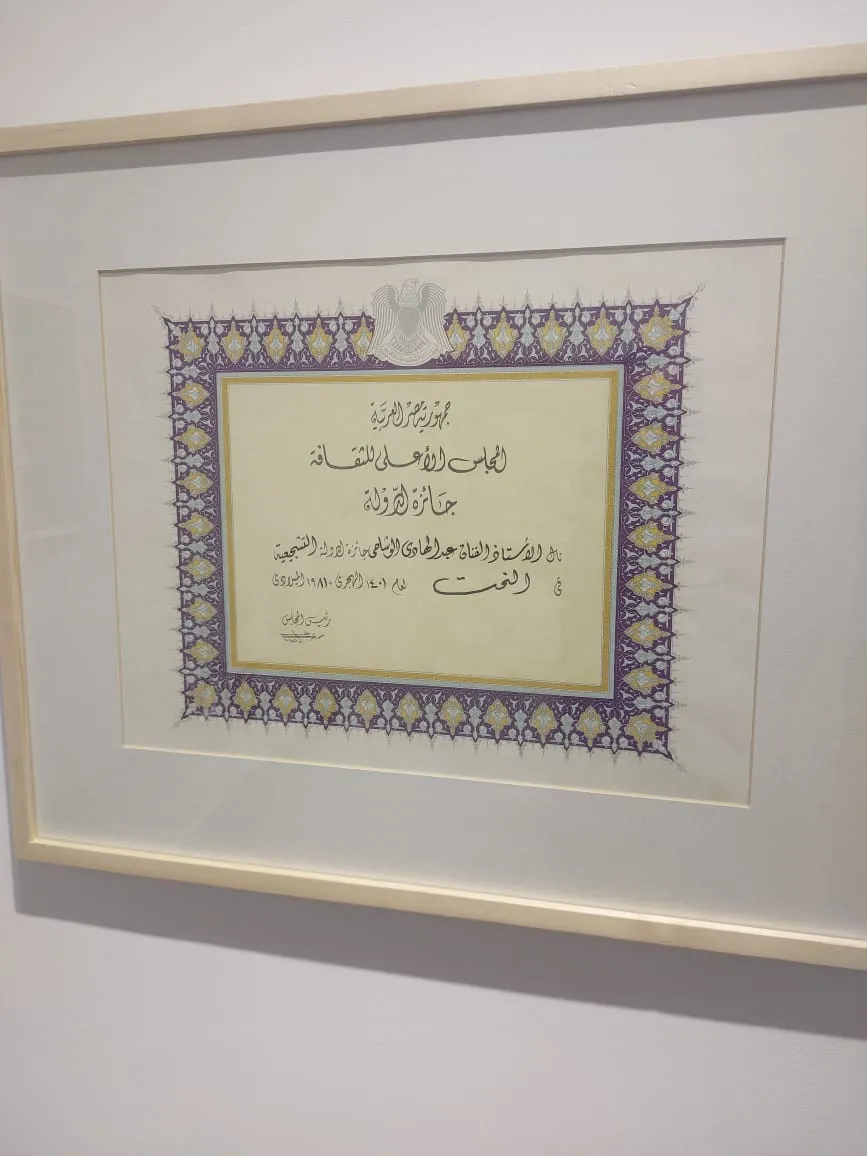 جمهورية مصر العربية
المجلس الأعلى للثقافة
جائزة الدولة
نال الأستاذ الفنان عبد الهادى الوشاحى جائزة الدولة التشجيعية
فى النحت لعام ١٤٠١ الهجرى - ١٩٨١ الميلادى
رئيس المجلس